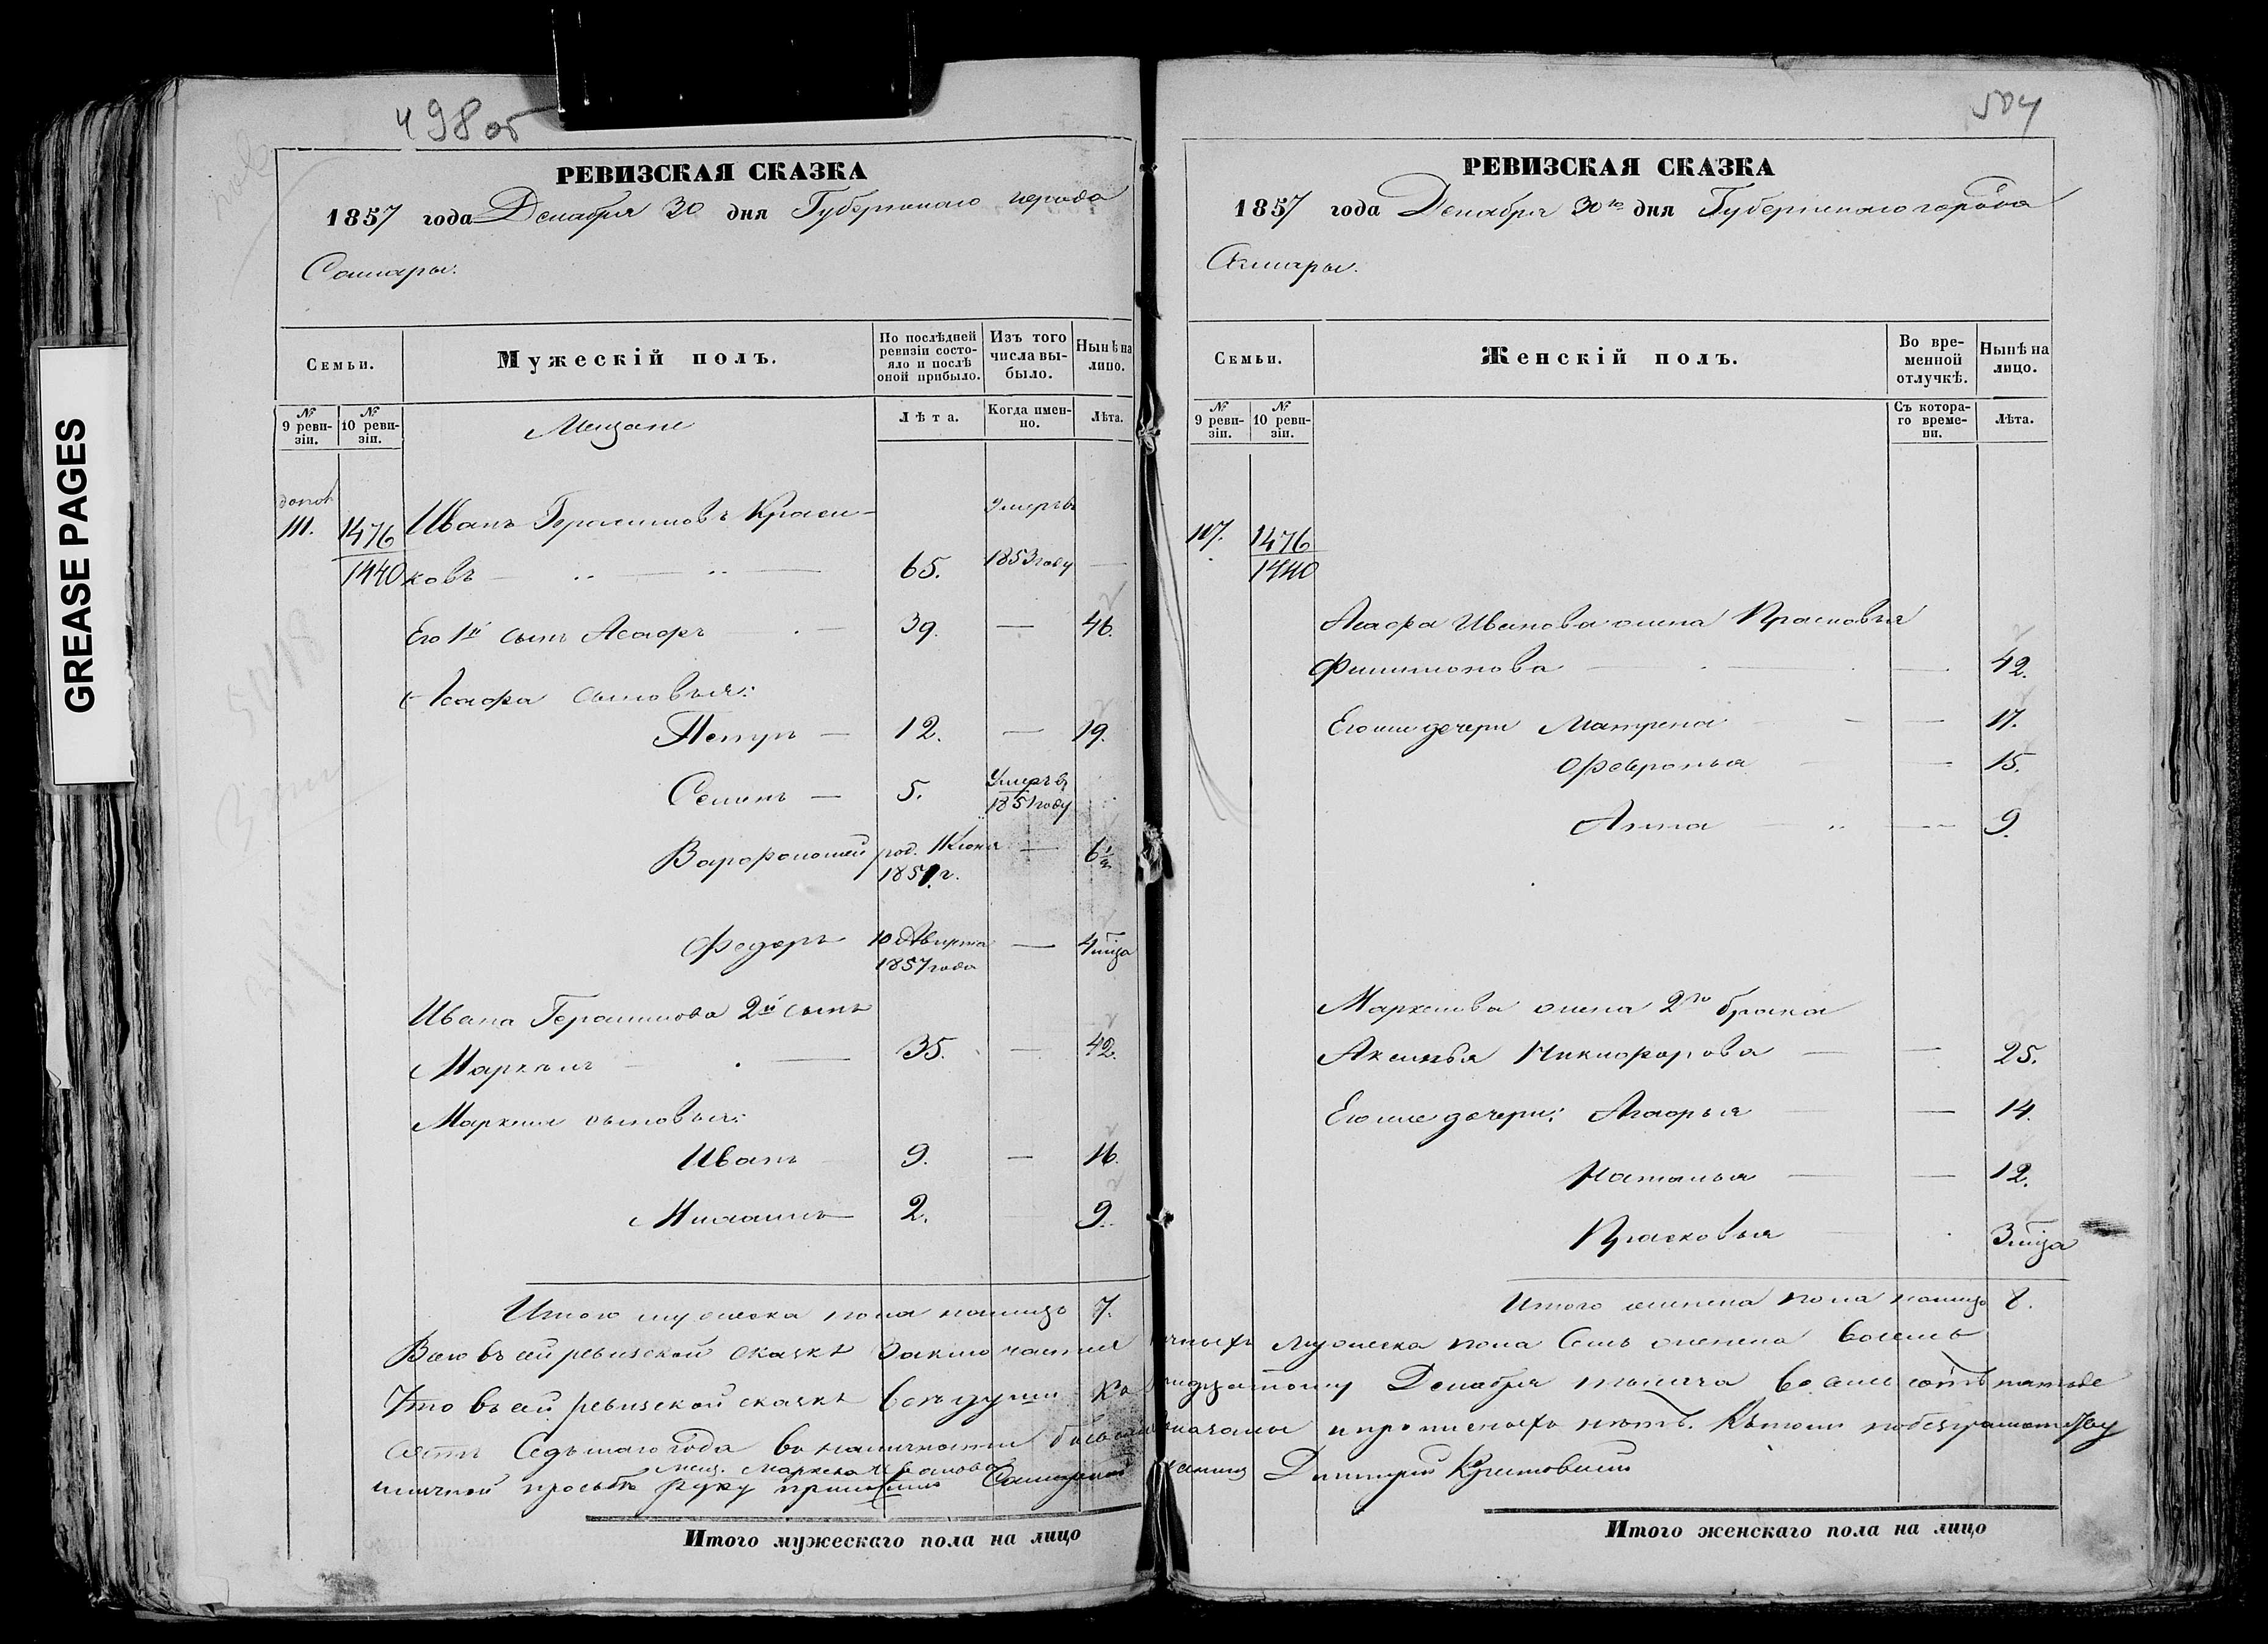 498 об
РЕВИЗСКАЯ СКАЗКА
1857 года Декабря 30 дня Губернского города
Самары.
Семьи.
Мужескій полъ.
По послѣдней ревизіи состояло и послѣ оной прибыло.
Изъ того числа выбыло.
Нынѣ на лицо.
№ 9 ревизіи.
№ 10 ревизіи.
Мещане
Лѣта.
Когда именно.
Лѣта.
допол
111. 1476 Иванъ Герасимовъ Краси- Умеръ въ
1440 ковъ 65. 1853 году
Его 1й сынъ Асафъ 39. — 46.
Асафа сыновья:
Петръ — 12. — 19.
Семенъ — 5. Умеръ въ 1851 году
Варфоломей род. 11 Июня 1851 г. — 6 1/2
Федоръ 10 Августа 1857 года — 4 мца
Ивана Герасимова 2й сынъ
Маркелъ 35. — 42.
Маркела сыновья:
Иванъ 9. — 16.
Михаилъ 2. 9.
Итого мужеска пола налицо 7.
Итого мужескаго пола на лицо
504
РЕВИЗСКАЯ СКАЗКА
1857 года Декабря 30го дня Губернского города
Самары.
Семьи.
Женскій полъ.
Во временной отлучкѣ.
Нынѣ на лицо.
№ 9 ревизіи.
№ 10 ревизіи.
Съ котораго времени.
Лѣта.
1476
1440
Асафа Иванова жена Прасковья
Филимонова — 42.
Его же дочери Матрена — 17.
Февронья — 15.
Анна — 9.
Маркелова жена 2го брака
Аксинья Никифорова — 25.
Его же дочери: Агафья — 14.
Наталья — 12.
Прасковья 3 мца
Итого женска пола налицо 8.
Всего въ сей ревизской сказкѣ заключается наличныхъ мужеска пола семь женска восемь
Что въ сей ревизской сказкѣ всѣ души къ тридцатому Декабря тысяча восемь сотъ пятьде
сятъ седьмаго года въ наличности прописныхъ нѣтъ. Въ томъ по безграмотству
и личной просьбѣ мещ. Маркела Иванова руку приложилъ Самарский мещанинъ Дмитрий
Итого женскаго пола на лицо
GREASE PAGES